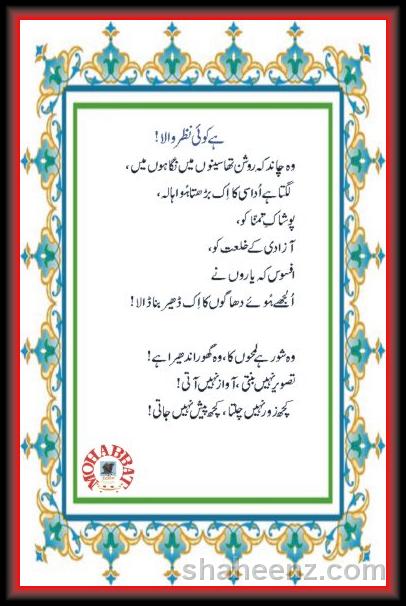 ہے کوئی نظر والا!
وہ چاند کہ روشن تھا سینوں میں نگاہوں میں،
لگتا ہے اُداسی کا اِک بڑھتا ہُوا ہالہ،
پوشاکِ تمنّا کو،
آزادی کے خلعت کو،
افسوس کہ یاروں نے
اُلجھے ہُوئے دھاگوں کا اِک ڈھیر بنا ڈالا!
وہ شور ہے لمحوں کا، وہ گھور اندھیرا ہے!
تصویر نہیں بنتی، آواز نہیں آتی!
کچھ زور نہیں چلتا، کچھ پیش نہیں جاتی!
MOHABBAT
shaheenz.com